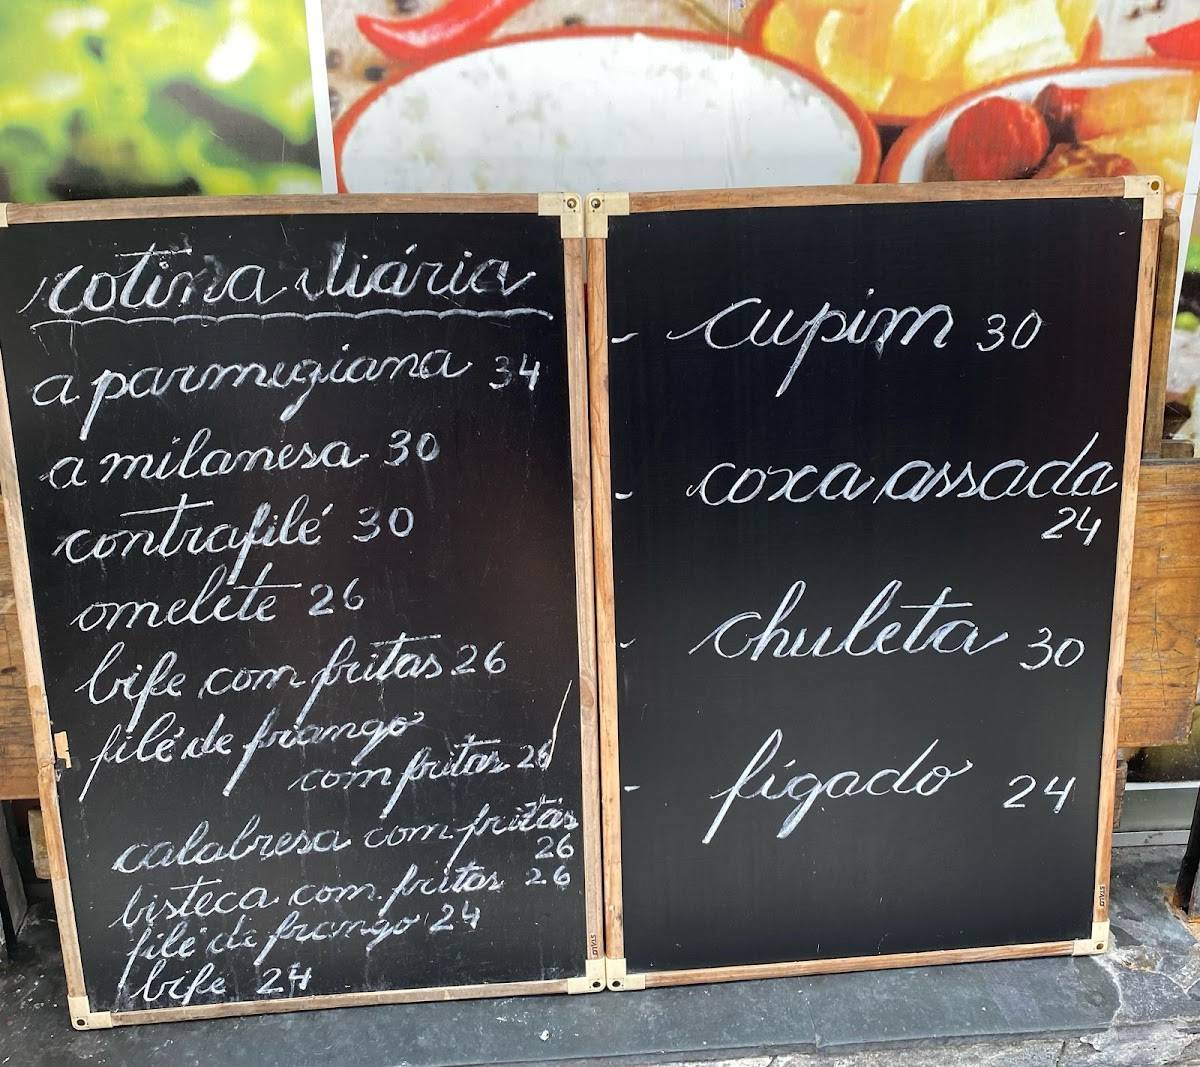 cotina diária
a parmegiana 34
a milanesa 30
contrafilé 30
omelete 26
bife com fritas 26
filé de frango
com fritas 26
calabresa com fritas
26
bisteca com fritas 26
filé de frango 24
bife 24
- cupim 30
- coxa assada
24
- chuleta 30
- fígado 24
STALO
STALO